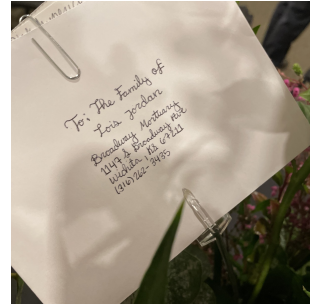 To: The Family of
Lois Jordan
Broadway Mortuary
1147 S Broadway Ave
Wichita, KS 67211
(316) 262-3435